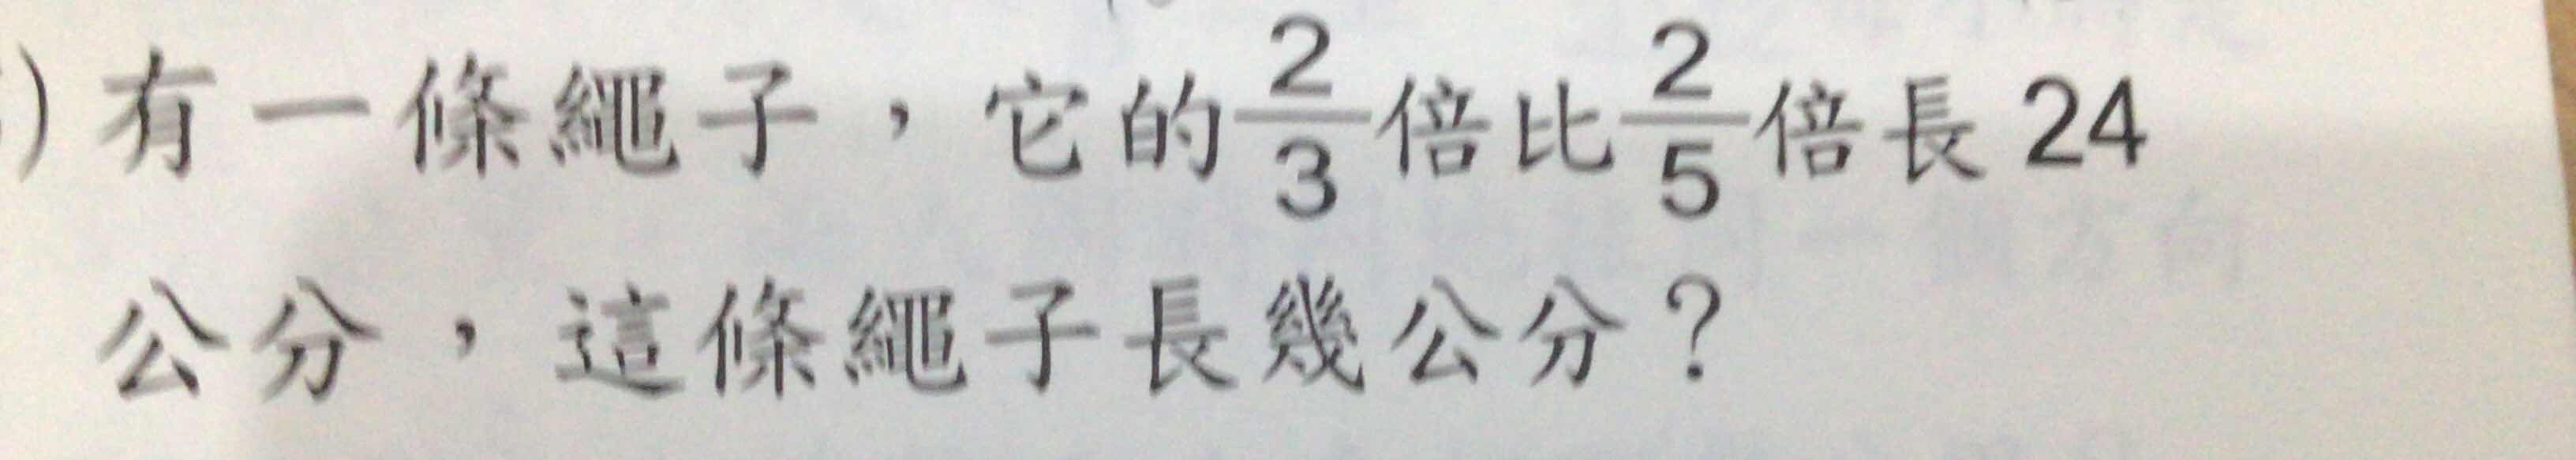 ) 有一條繩子，它的2/3倍比2/5倍長24
公分，這條繩子長幾公分？